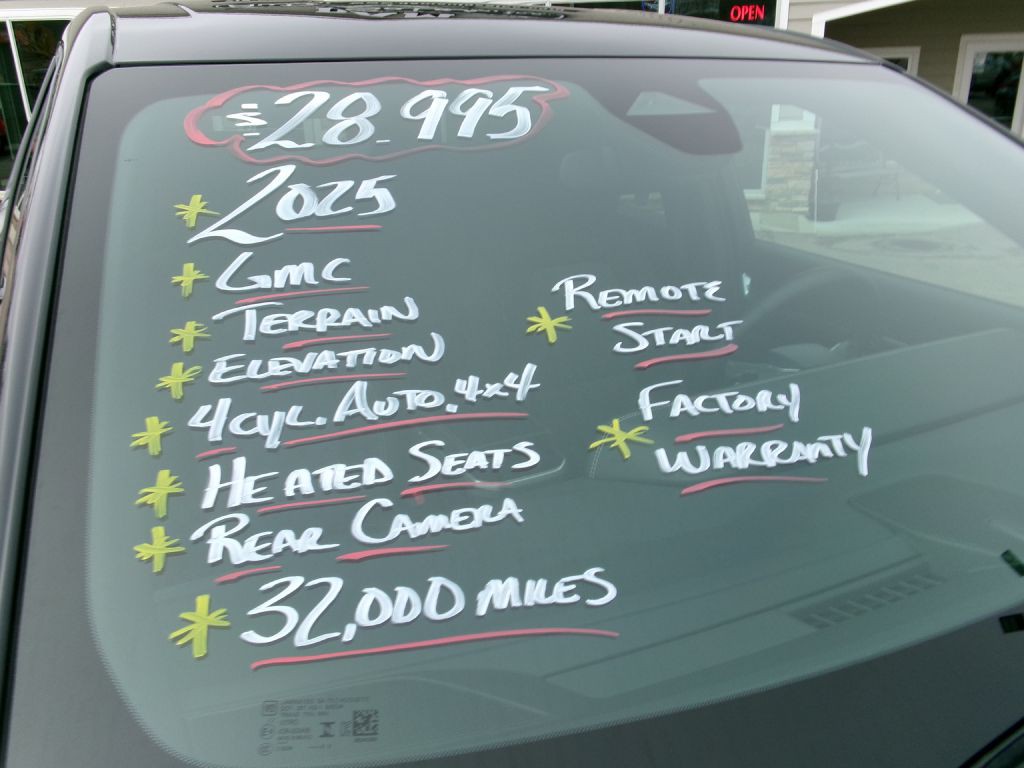 OPEN
$28,995
* 2025
* GMC
* TERRAIN
* ELEVATION
* 4 CYL. AUTO. 4x4
* HEATED SEATS
* REAR CAMERA
* 32,000 MILES
* REMOTE
START
* FACTORY
WARRANTY